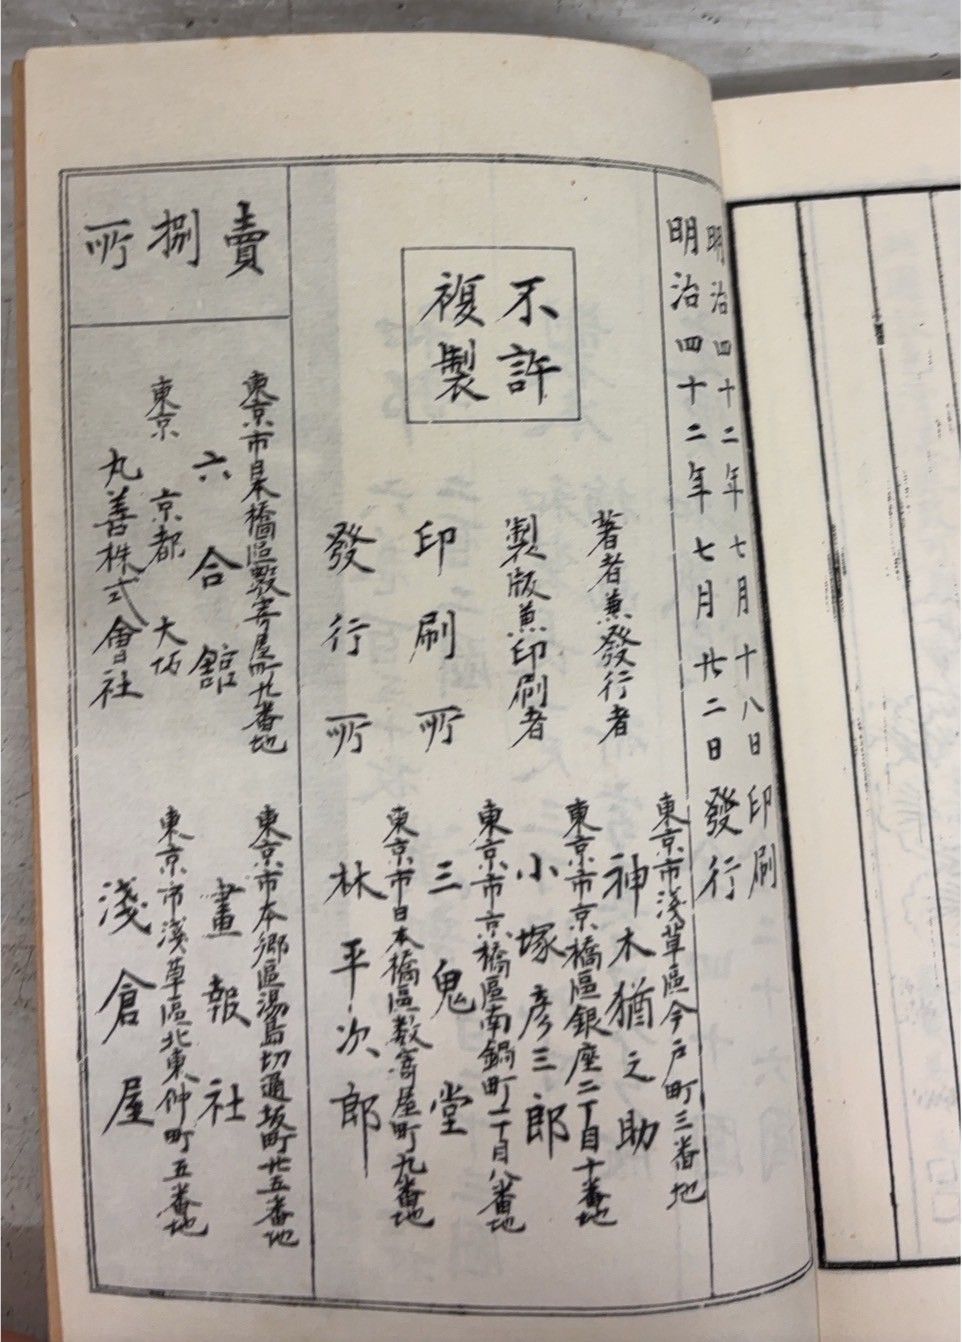 明治四十二年七月十八日印刷
明治四十二年七月廿二日發行
不許
複製
著者兼發行者
東京市淺草區今戸町三番地
神木猶之助
製版兼印刷者
東京市京橋區銀座二丁目十番地
小塚彦三郎
印刷所
東京市京橋區南鍋町一丁目八番地
三鬼堂
發行所
東京市日本橋區数寄屋町九番地
林平次郎
賣捌所
東京市日本橋區数寄屋町九番地
六合館
東京 京都 大阪
丸善株式會社
東京市本郷區湯島切通坂町廿五番地
畫報社
東京市淺草區北東仲町五番地
淺倉屋